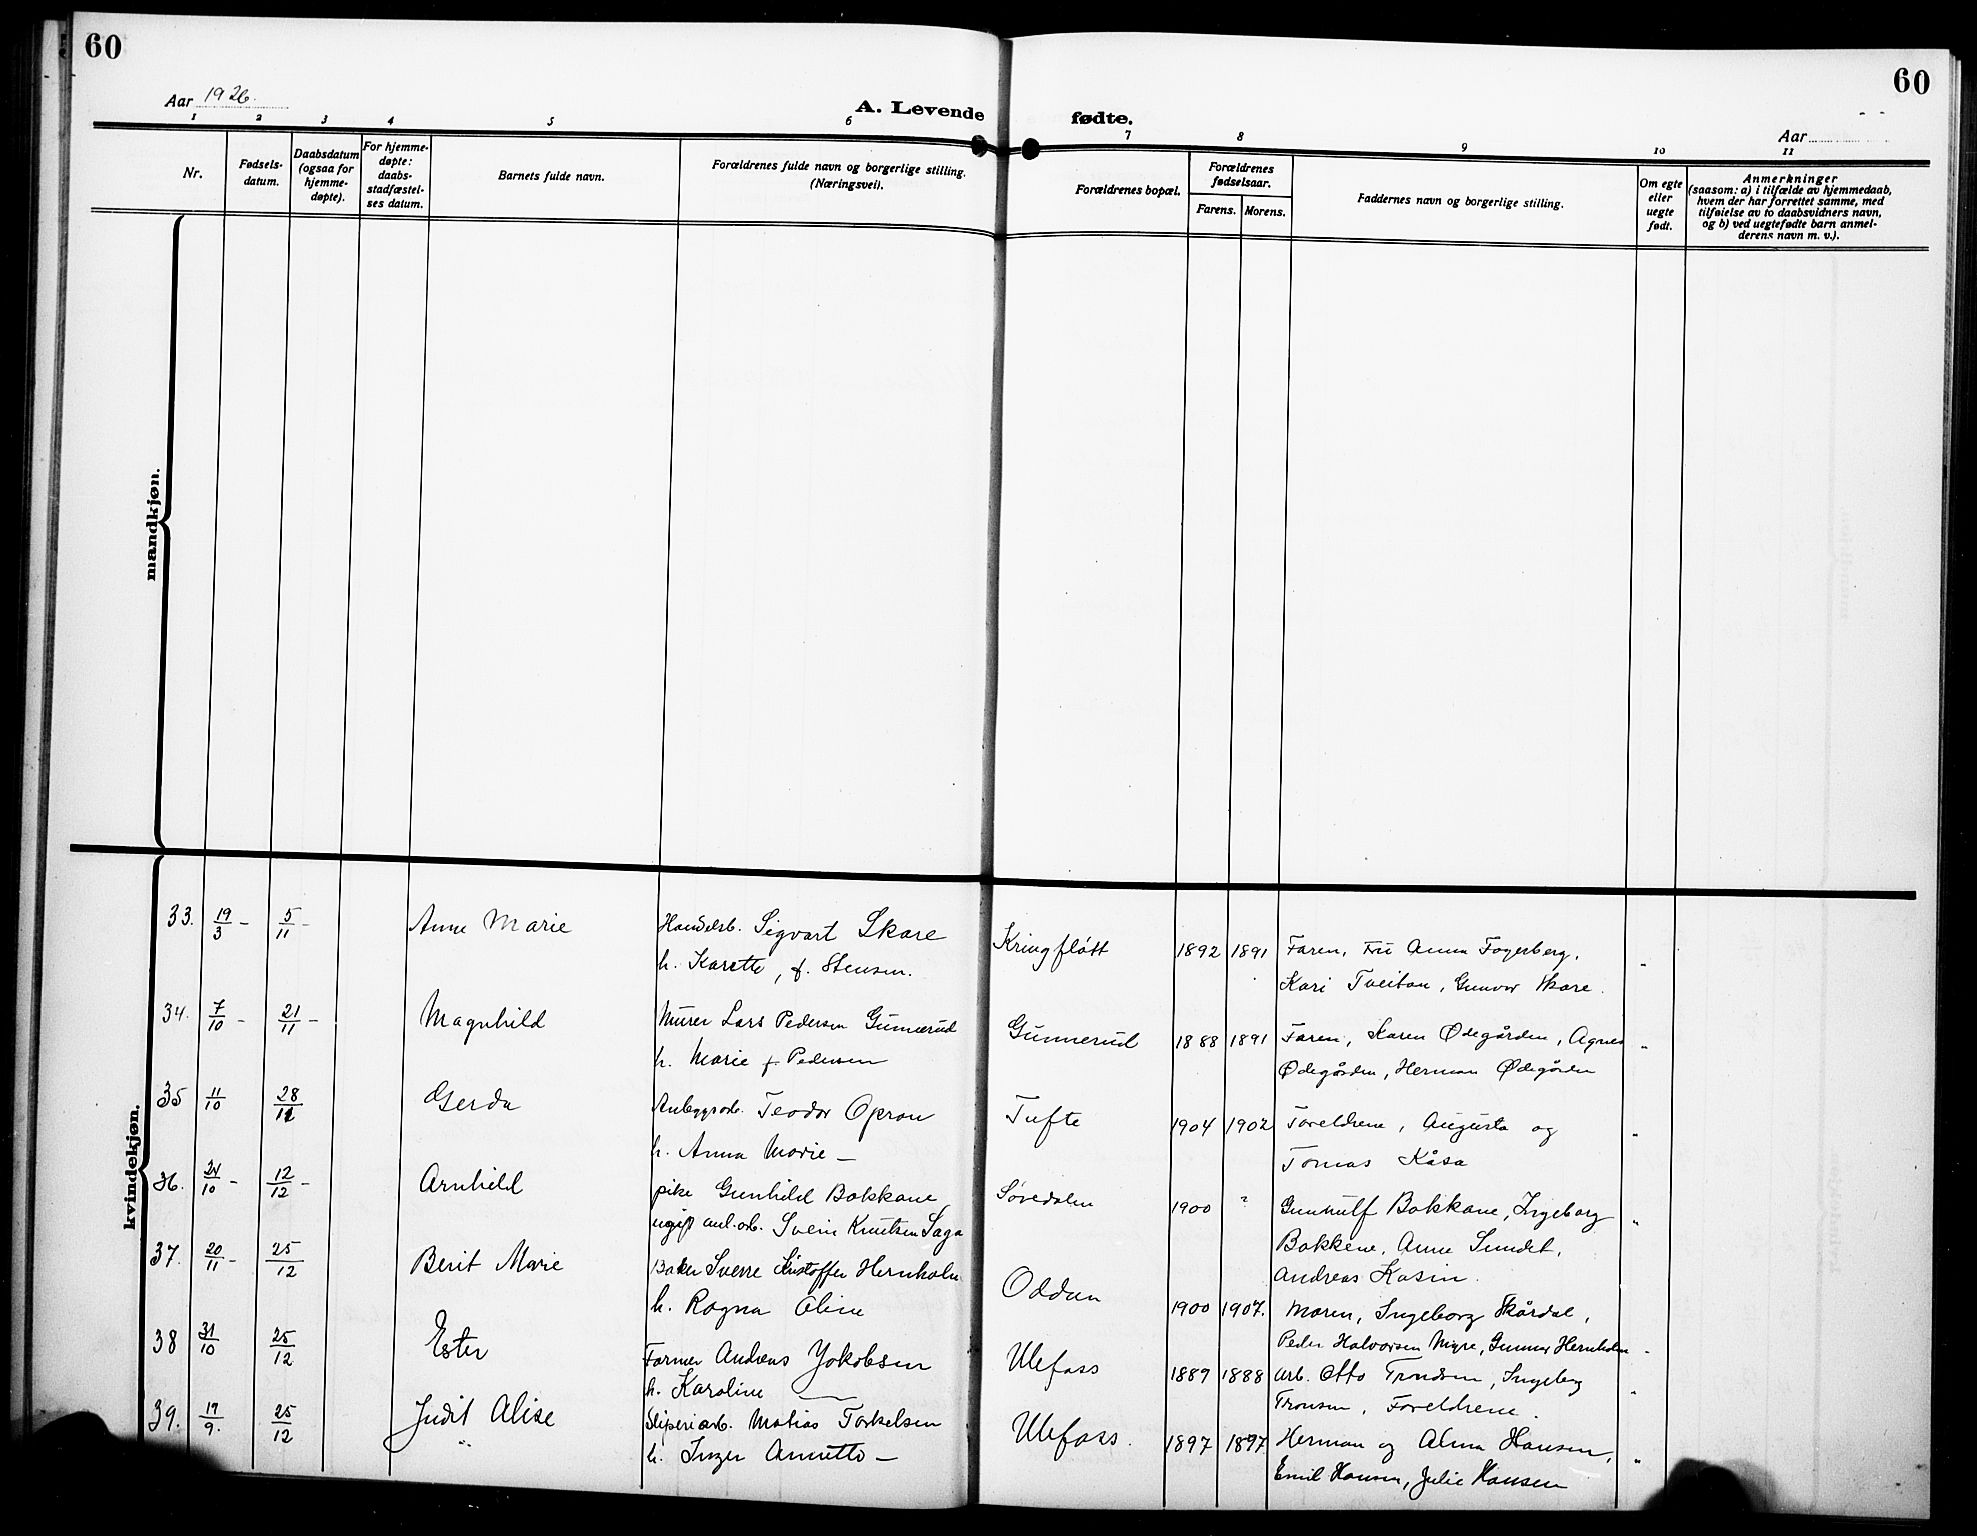 60
60
Aar 1926.
A. Levende fødte.
Aar
1 2 3 4 5 6 7 8 9 10 11
Nr.
Fødsels-
datum.
Daabsdatum
(ogsaa for
hjemme-
døpte).
For hjemme-
døpte:
daabs-
stadfæstel-
ses datum.
Barnets fulde navn.
Forældrenes fulde navn og borgerlige stilling.
(Næringsvei).
Forældrenes bopæl.
Forældrenes
fødselsaar.
Farens. Morens.
Faddernes navn og borgerlige stilling.
Om egte
eller
uegte
født.
Anmerkninger
(saasom: a) i tilfælde av hjemmedaab,
hvem der har forrettet samme, med
tilføielse av to daabsvidners navn,
og b) ved uegtefødte barn anmel-
derens navn m. v.).
mandkjøn.
kvindekjøn.
33. 19/3 - 5/11 - Anne Marie Handelsb. Sigvart Skare Kringflått 1892 1891 Faren, Fru Anna Fagerberg, "
h. Karette, f. Stensen. Kari Tveitan, Gunvor Skare.
34. 7/10 - 21/11 - Magnhild Murer Lars Pedersen Gunnerud Gunnerud 1888 1891 Faren, Karen Ødegården, Agnes "
h. Marie f. Pedersen Ødegården, Herman Ødegården
35 11/10 28/11 Gerda Anleggsarb. Teodor Opran Tufte 1904 1902 Foreldrene, Augusta og "
h. Anna Marie — Tomas Kåsa
36. 24/10 - 12/12 - Arnhild pike Gunhild Bakkane Søvedalen 1900 ? Gunnulf Bakkane, Ingeborg "
ugift anl.arb. Svein Knutsen Saga Bakkene, Anne Sundet,
Andreas Kasin.
37. 20/11 - 25/12 Berit Marie Baker Sverre Kristoffer Hernholm Oddan 1900 1907. Moren, Ingeborg Skårdal,
h. Ragna Aline Peder Halvorsen Myre, Gunnar Hernholm "
38 31/10 25/12 Ester Former Andreas Jakobsen Ulefoss 1889 1888 Arb. Otto Trondsen, Ingeborg "
h. Karoline — Tronsen, Foreldrene.
39. 19/9. 25/12 Judit Alise Sliperiarb. Matias Torkelsen Ulefoss. 1897 1897 Herman og Alma Hansen, "
h. Inger Annette — Emil Hansen, Julie Hansen